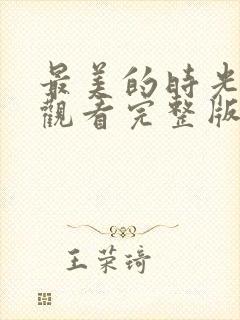 最美的時光
觀看完整版
王荣琦